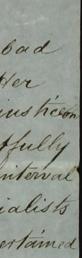 bad
Her
injustice on
fully
interval
ialists
ertained